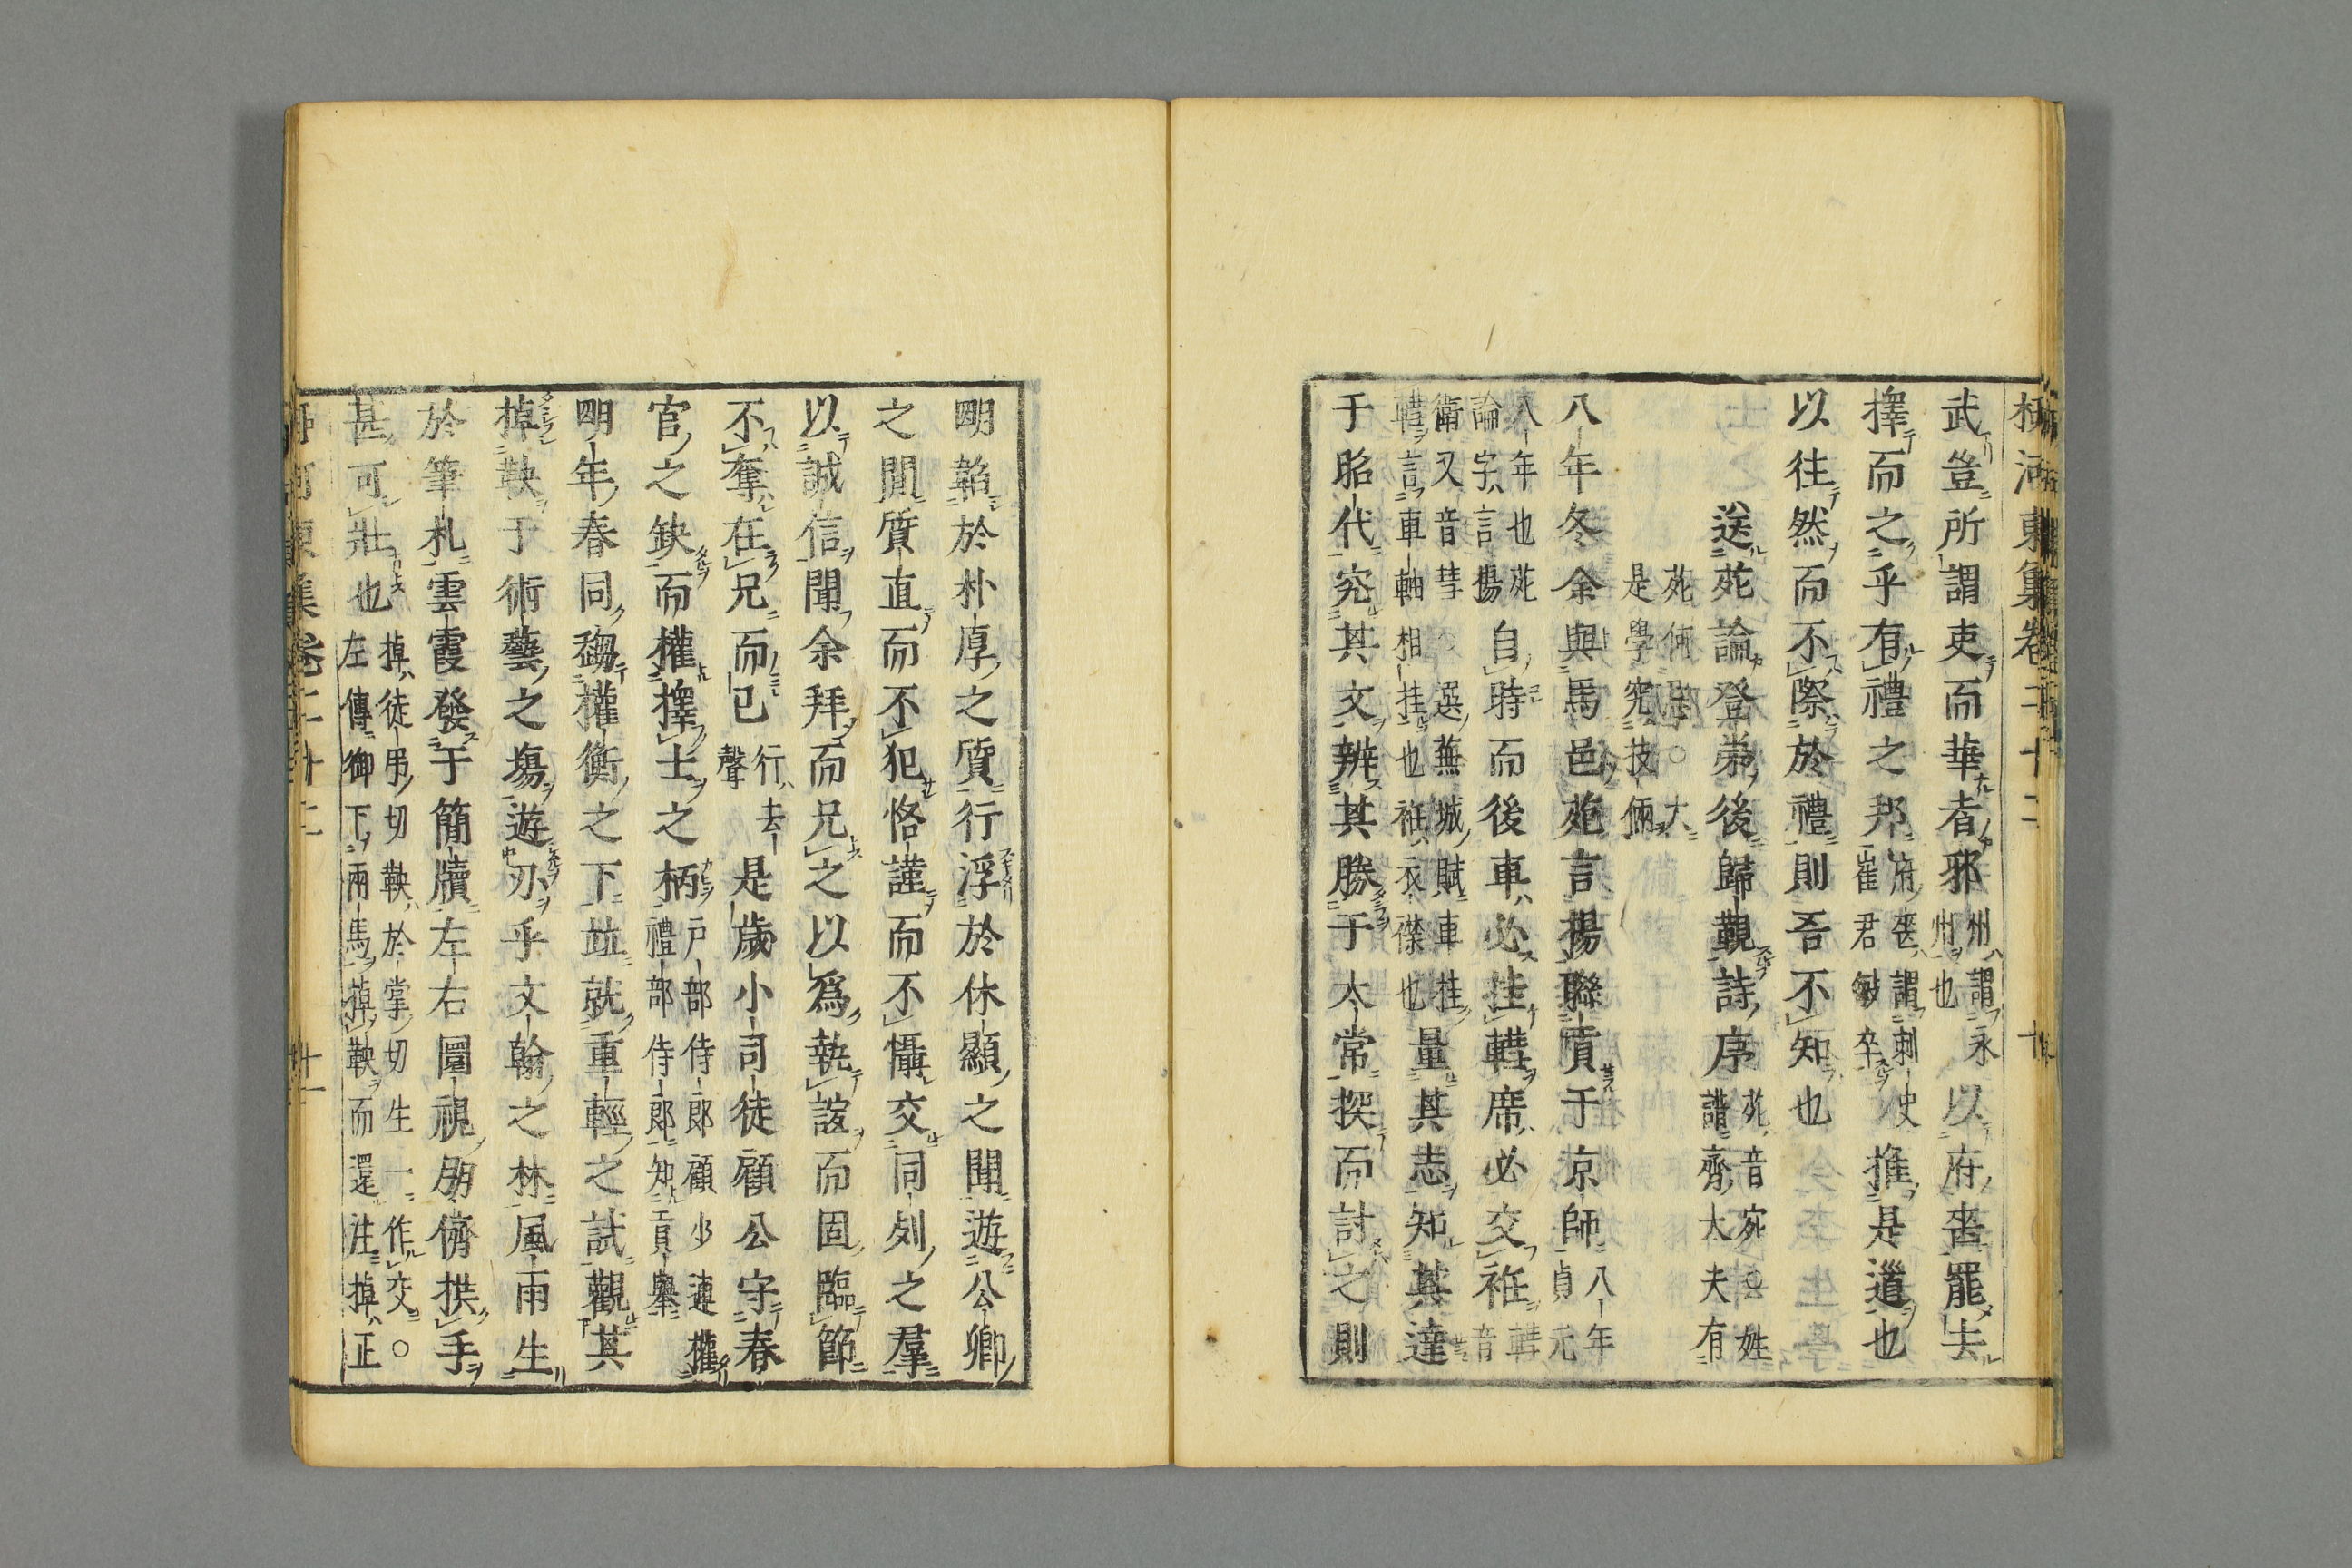 柳河東集卷二十二 十
武豈所謂吏而華者邪州謂永州也以府喪罷去
擇而之乎有禮之邦府喪謂刺史崔君敏卒推是道也
以往然而不際於禮則吾不知也
送苑論登第後歸覲詩序苑音宛○姓譜齊大夫有
苑何忌○大是學究技倆
八年冬余與馬邑苑言揚聯貢于京師八年貞元
八年也苑論字言揚自時而後車必挂轊席必交衽轊音
衛又音彗○選蕪城賦車挂轊言車軸相挂也衽衣襟也量其志知其達
于昭代究其文辨其勝于太常探而討之則
明韜於朴厚之質行浮於休顯之聞遊公卿
之間質直而不犯恪謹而不懾交同列之羣
以誠信聞余拜而兄之以爲執誼而固臨節
不奪在兄而已行去聲是歲小司徒顧公守春
官之缺而權擇士之柄戸部侍郎顧少連權禮部侍郎知貢擧
明年春同趨權衡之下竝就重輕之試觀其
掉鞅于術藝之場遊刃乎文翰之林風雨生
於筆札雲霞發于簡牘左右圜視朋儕拱手
甚可壯也掉徒弔切鞅於掌切生一作交○左傳御下兩馬掉鞅而還注掉正